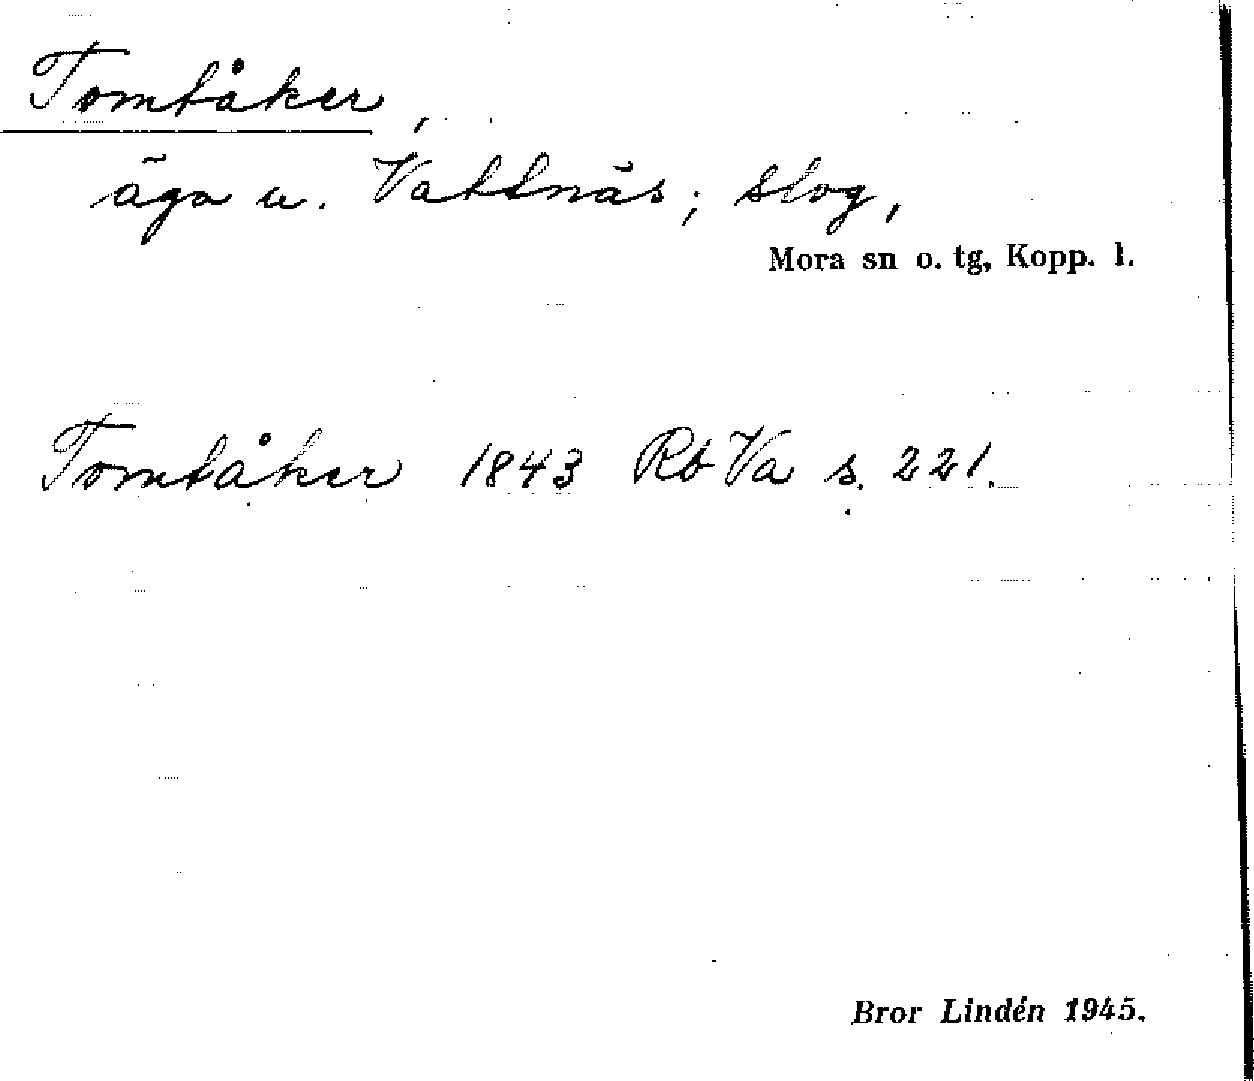 Tomtåker,
äga u. Vattnäs; slog,
Mora sn o. tg, Kopp. l.
Tomtåker 1843 Rb Va s. 221.
Bror Lindén 1945.